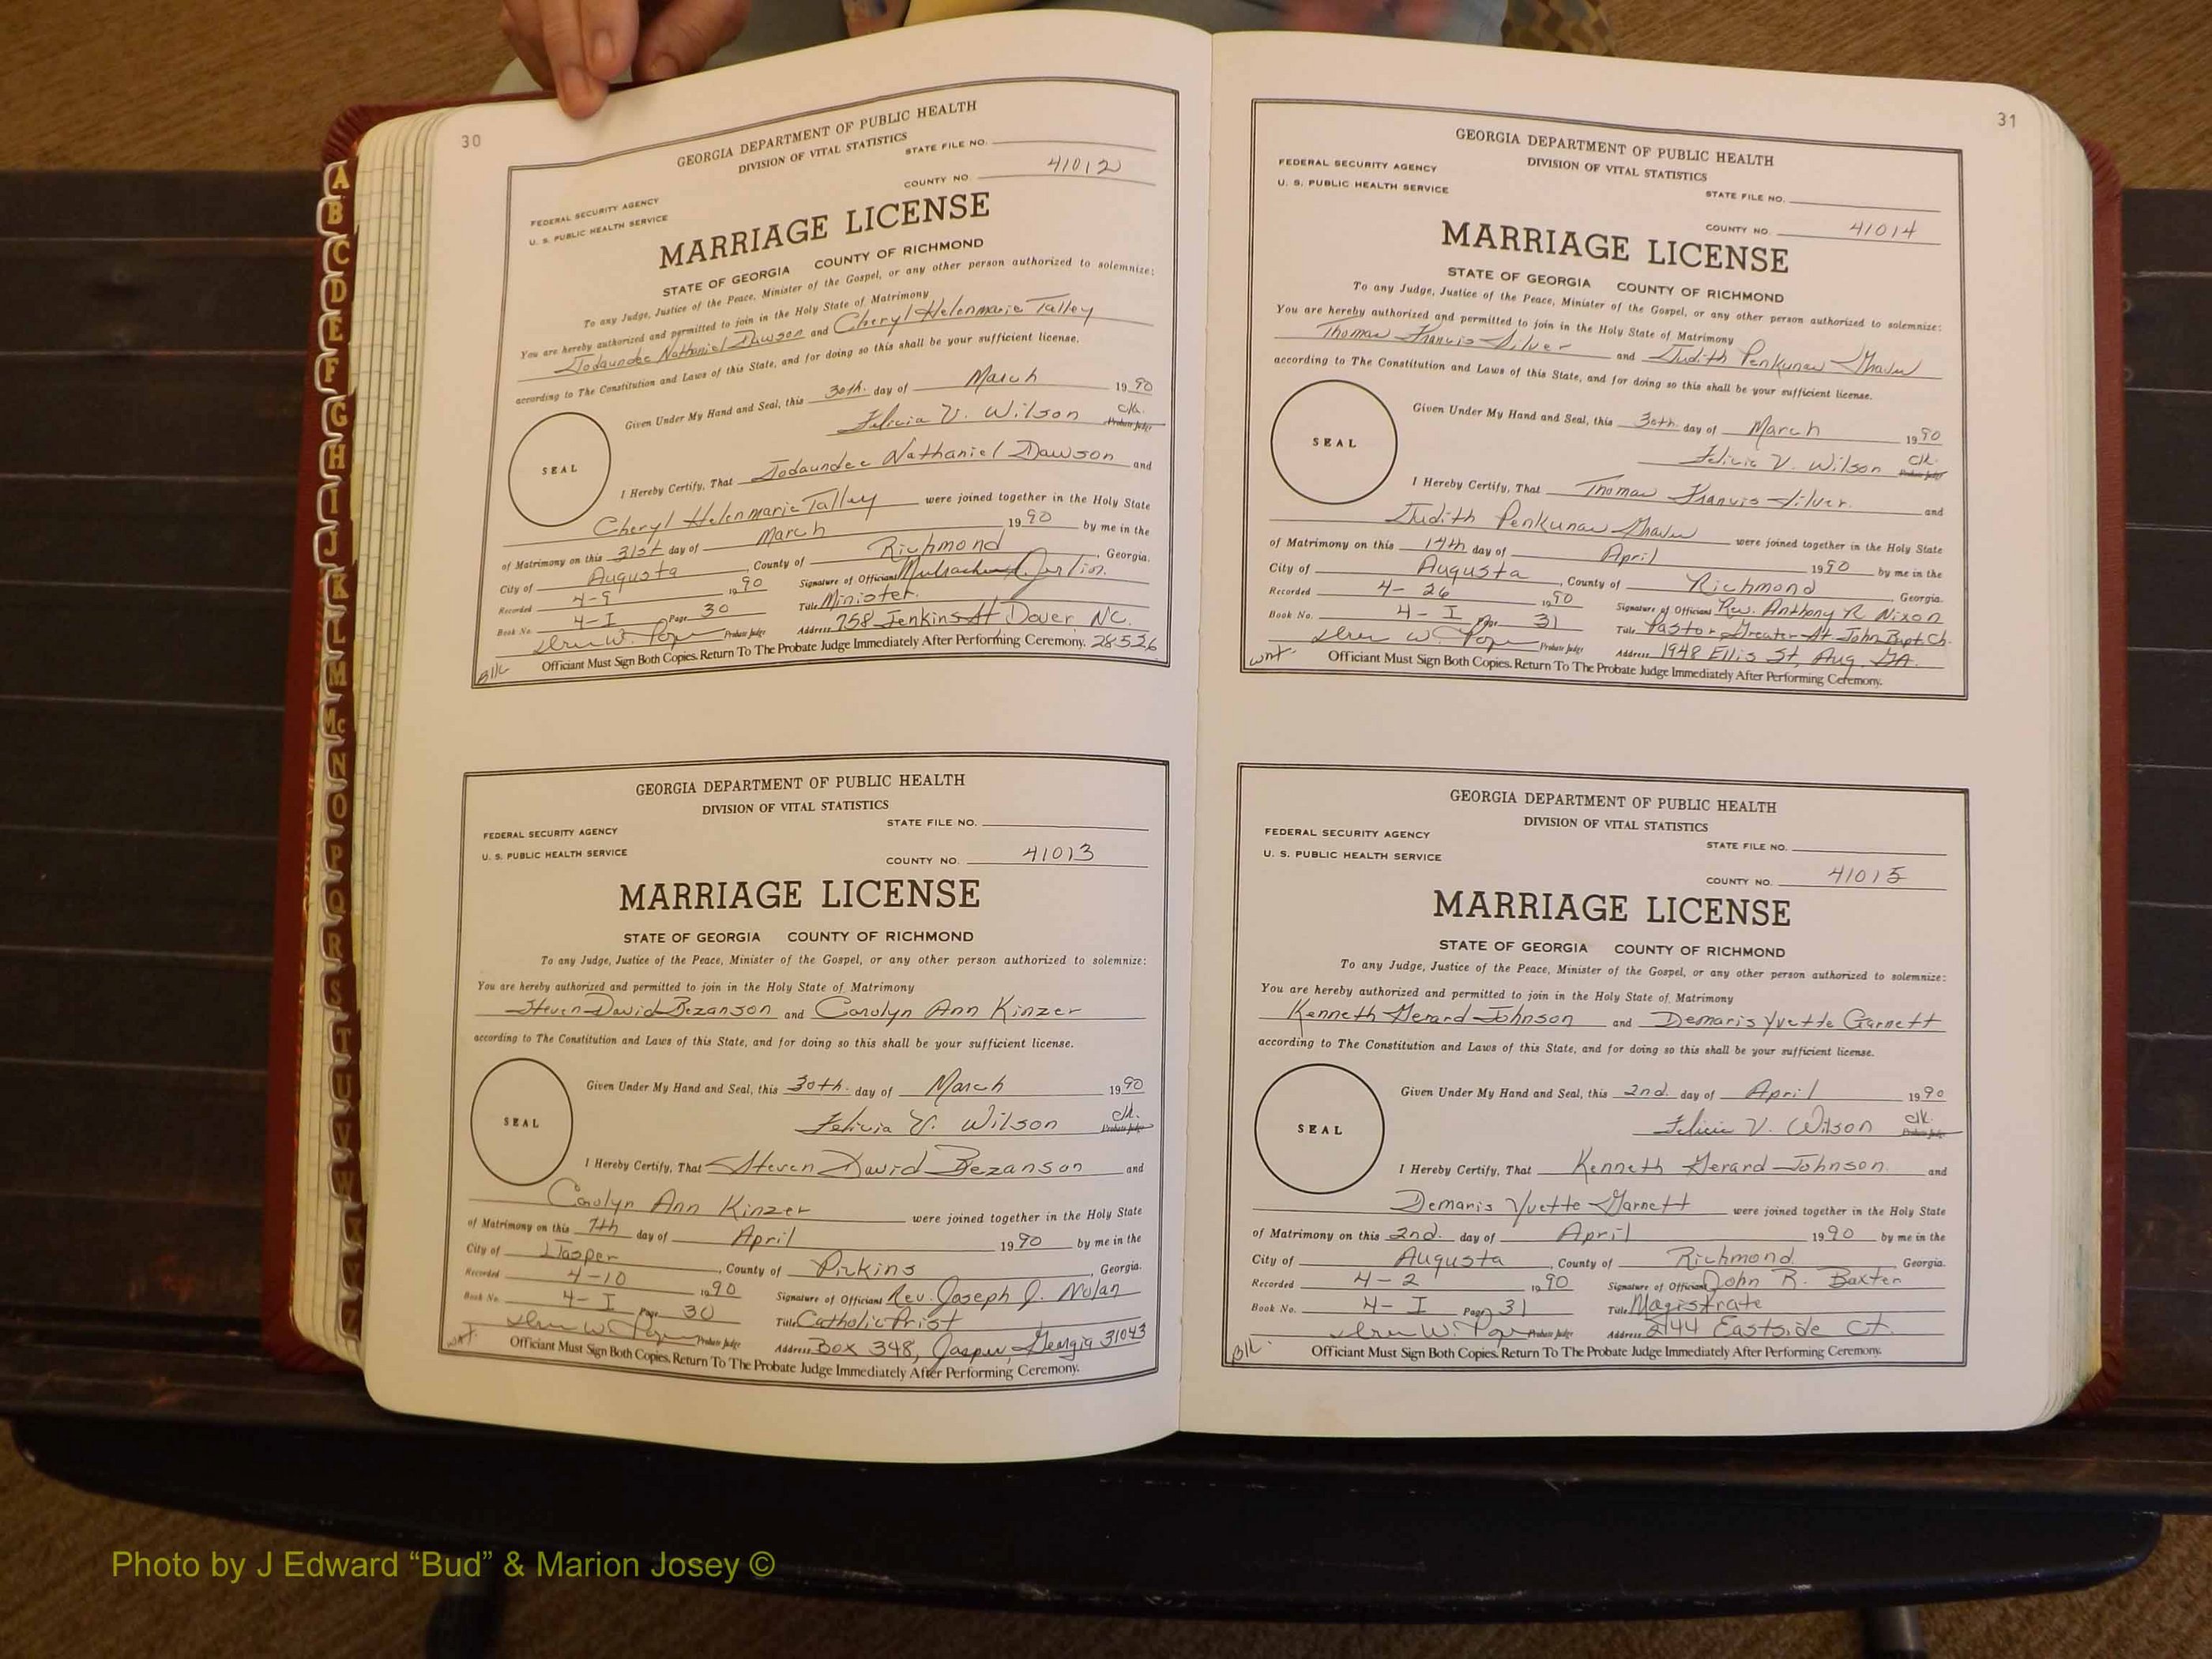 30
GEORGIA DEPARTMENT OF PUBLIC HEALTH
DIVISION OF VITAL STATISTICS
STATE FILE NO.
FEDERAL SECURITY AGENCY
U. S. PUBLIC HEALTH SERVICE
COUNTY NO. 41012
MARRIAGE LICENSE
STATE OF GEORGIA COUNTY OF RICHMOND
To any Judge, Justice of the Peace, Minister of the Gospel, or any other person authorized to solemnize:
You are hereby authorized and permitted to join in the Holy State of Matrimony
Jodaundee Nathaniel Dawson and Cheryl Helenmarie Talley
according to The Constitution and Laws of this State, and for doing so this shall be your sufficient license.
Given Under My Hand and Seal, this 30th. day of March 1990
Felicia V. Wilson clk.
Probate Judge
SEAL
I Hereby Certify, That Jodaundee Nathaniel Dawson and
Cheryl Helenmarie Talley were joined together in the Holy State
of Matrimony on this 31st day of March 1990 by me in the
City of Augusta, County of Richmond, Georgia.
Recorded 4-9 1990 Signature of Officiant
Book No. 4-I Page 30 Title Minister.
Probate Judge Address 758 Jenkins St Dover NC. 28526
Officiant Must Sign Both Copies. Return To The Probate Judge Immediately After Performing Ceremony.
Blk
GEORGIA DEPARTMENT OF PUBLIC HEALTH
DIVISION OF VITAL STATISTICS
STATE FILE NO.
FEDERAL SECURITY AGENCY
U. S. PUBLIC HEALTH SERVICE
COUNTY NO. 41013
MARRIAGE LICENSE
STATE OF GEORGIA COUNTY OF RICHMOND
To any Judge, Justice of the Peace, Minister of the Gospel, or any other person authorized to solemnize:
You are hereby authorized and permitted to join in the Holy State of Matrimony
Steven David Bezanson and Carolyn Ann Kinzer
according to The Constitution and Laws of this State, and for doing so this shall be your sufficient license.
Given Under My Hand and Seal, this 30th. day of March 1990
Felicia V. Wilson clk.
Probate Judge
SEAL
I Hereby Certify, That Steven David Bezanson and
Carolyn Ann Kinzer were joined together in the Holy State
of Matrimony on this 7th day of April 1990 by me in the
City of Jasper, County of Pickins, Georgia.
Recorded 4-10 1990 Signature of Officiant Rev. Joseph J. Nolan
Book No. 4-I Page 30 Title Catholic Prist
Probate Judge Address Box 348, Jasper, Georgia 31043
wht. Officiant Must Sign Both Copies. Return To The Probate Judge Immediately After Performing Ceremony.
31
GEORGIA DEPARTMENT OF PUBLIC HEALTH
DIVISION OF VITAL STATISTICS
FEDERAL SECURITY AGENCY
U. S. PUBLIC HEALTH SERVICE
STATE FILE NO.
COUNTY NO. 41014
MARRIAGE LICENSE
STATE OF GEORGIA COUNTY OF RICHMOND
To any Judge, Justice of the Peace, Minister of the Gospel, or any other person authorized to solemnize:
You are hereby authorized and permitted to join in the Holy State of Matrimony
Thomas Francis Silver and Judith Penkunas
according to The Constitution and Laws of this State, and for doing so this shall be your sufficient license.
Given Under My Hand and Seal, this 30th. day of March 1990
Felicia V. Wilson clk.
Probate Judge
SEAL
I Hereby Certify, That Thomas Francis Silver. and
Judith Penkunas were joined together in the Holy State
of Matrimony on this 14th day of April 1990 by me in the
City of Augusta, County of Richmond, Georgia.
Recorded 4-26 1990 Signature of Officiant Rev. Anthony R Nixon
Book No. 4-I Page 31 Title Pastor Greater St John Bapt. Ch.
Probate Judge Address 1948 Ellis St, Aug GA.
wht. Officiant Must Sign Both Copies. Return To The Probate Judge Immediately After Performing Ceremony.
GEORGIA DEPARTMENT OF PUBLIC HEALTH
DIVISION OF VITAL STATISTICS
FEDERAL SECURITY AGENCY
U. S. PUBLIC HEALTH SERVICE
STATE FILE NO.
COUNTY NO. 41015
MARRIAGE LICENSE
STATE OF GEORGIA COUNTY OF RICHMOND
To any Judge, Justice of the Peace, Minister of the Gospel, or any other person authorized to solemnize:
You are hereby authorized and permitted to join in the Holy State of Matrimony
Kenneth Gerard Johnson and Demaris Yvette Garnett
according to The Constitution and Laws of this State, and for doing so this shall be your sufficient license.
Given Under My Hand and Seal, this 2nd. day of April 1990
Felicia V. Wilson clk.
Probate Judge
SEAL
I Hereby Certify, That Kenneth Gerard Johnson. and
Demaris Yvette Garnett were joined together in the Holy State
of Matrimony on this 2nd. day of April 1990 by me in the
City of Augusta, County of Richmond, Georgia.
Recorded 4-2 1990 Signature of Officiant John R. Baxter
Book No. 4-I Page 31 Title Magistrate
Probate Judge Address 2144 Eastside Ct.
Blk. Officiant Must Sign Both Copies. Return To The Probate Judge Immediately After Performing Ceremony.
A
B
C
D
E
F
G
H
I
J
K
L
M
Mc
N
O
P
Q
R
S
T
U
V
W
X
Y
Z
Photo by J Edward “Bud” & Marion Josey ©